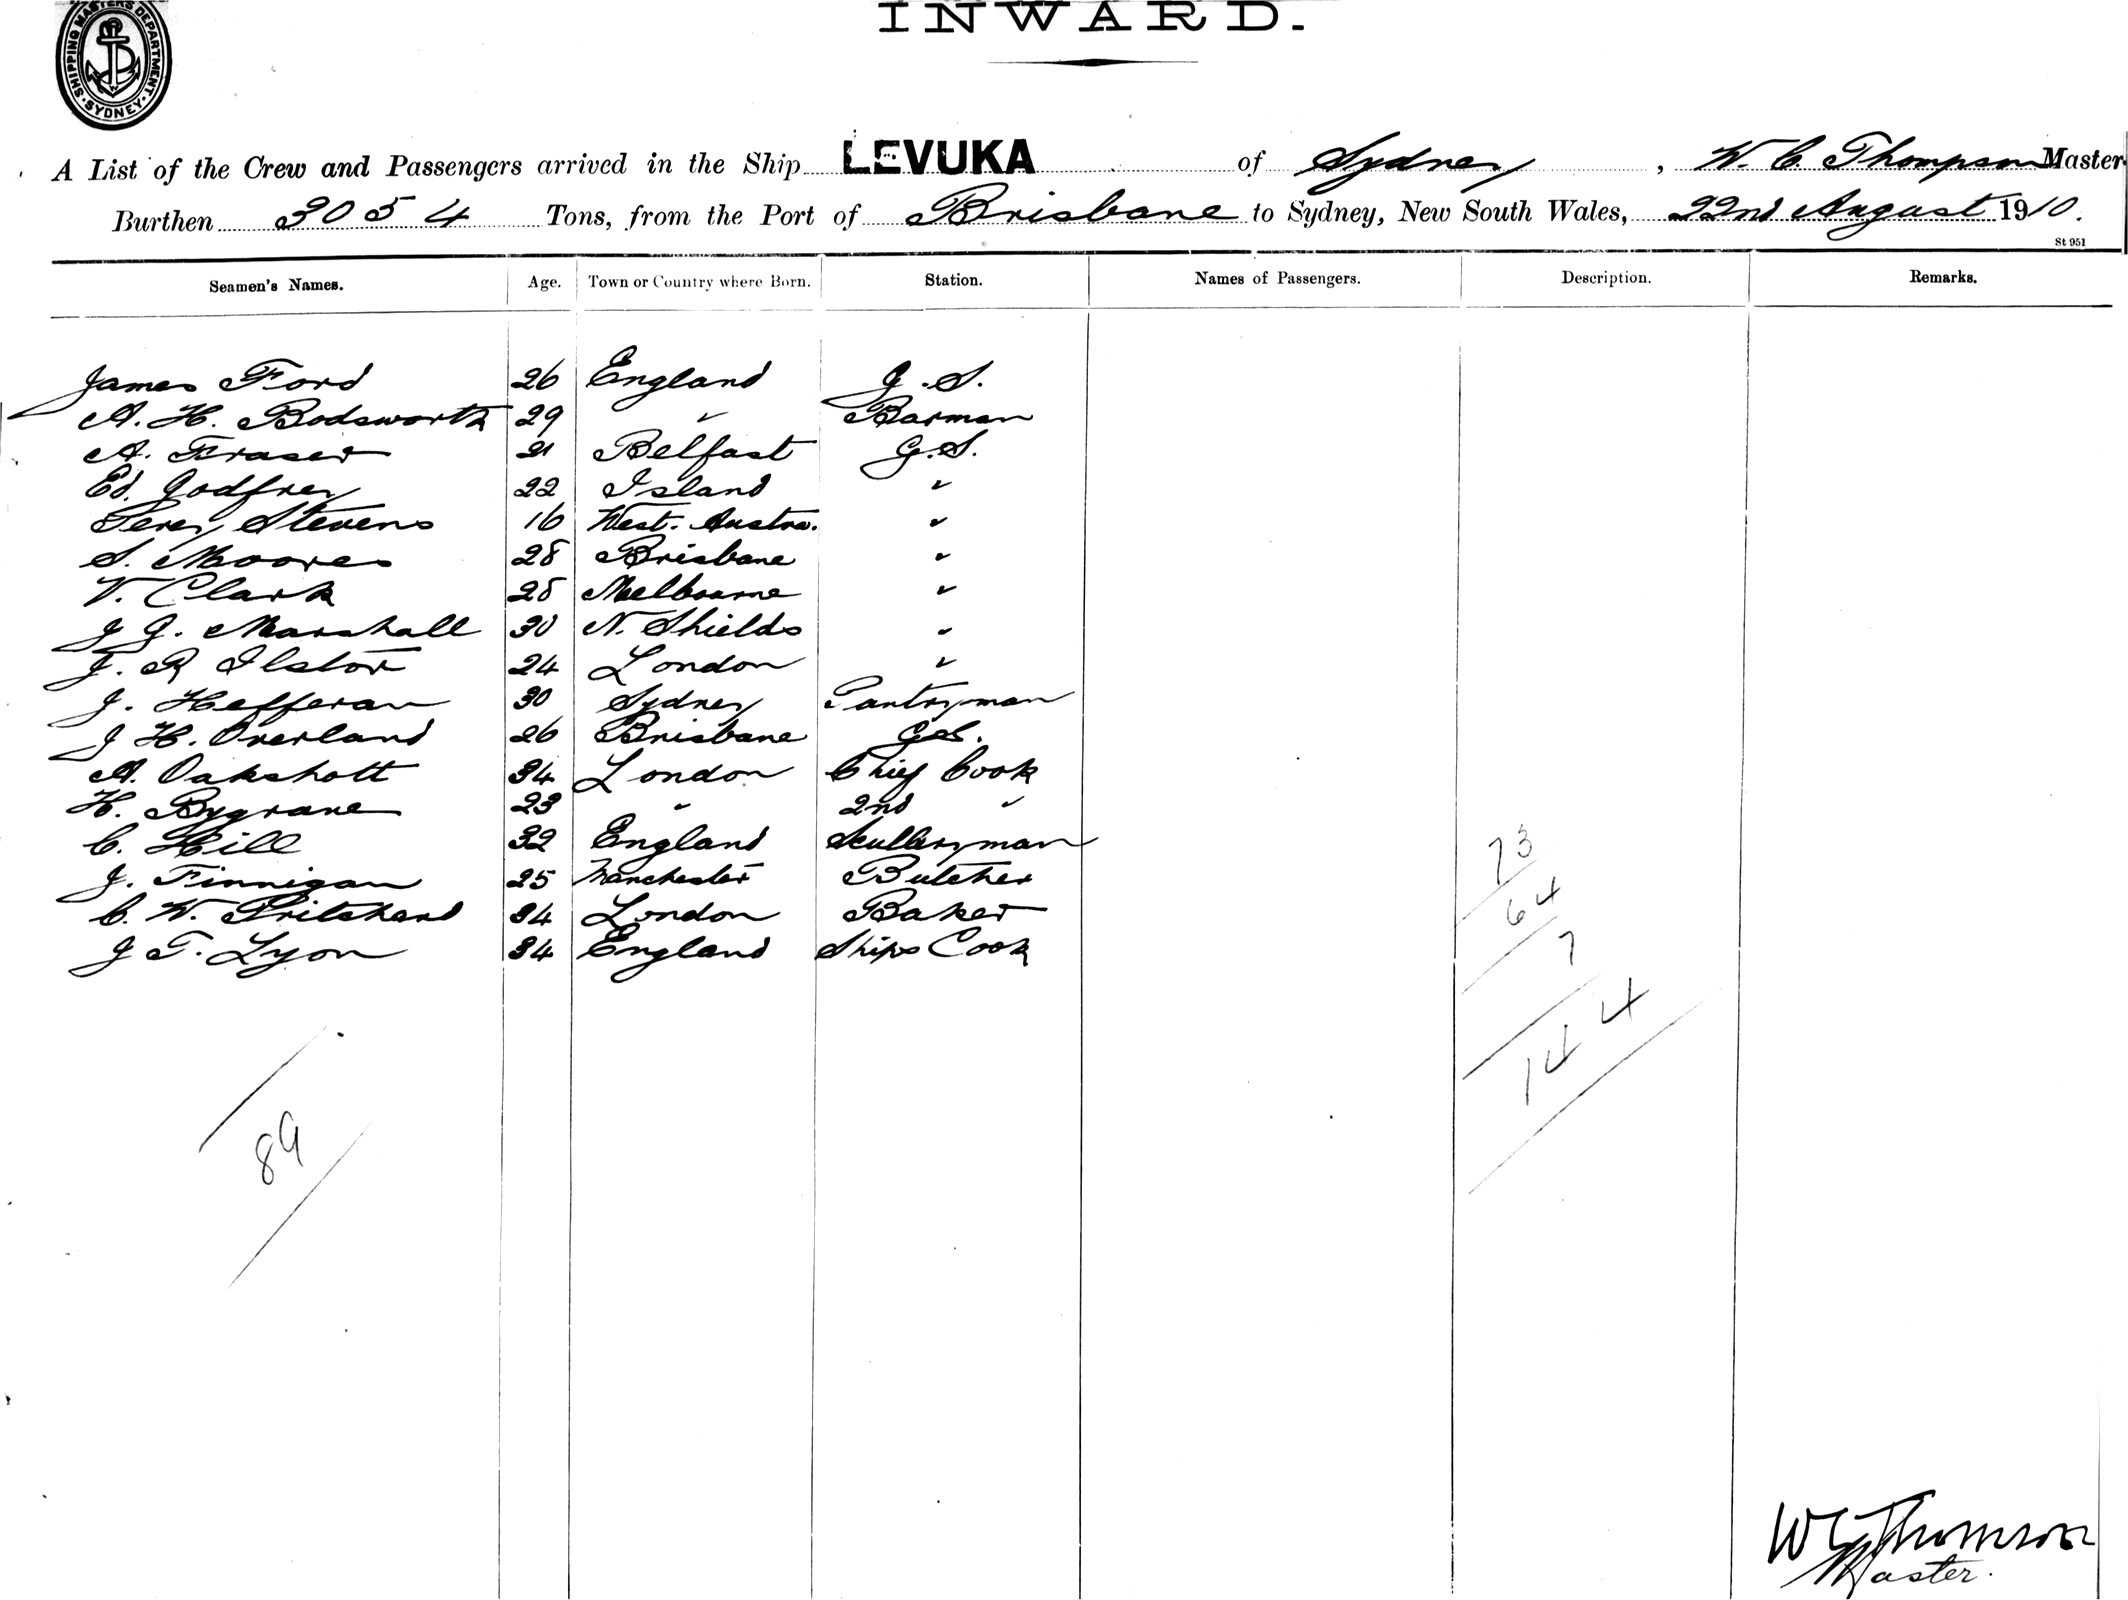 SHIPPING MASTERS DEPARTMENT
· SYDNEY ·
INWARD.
A List of the Crew and Passengers arrived in the Ship LEVUKA of Sydney, W. C. Thompson Master
Burthen 3054 Tons, from the Port of Brisbane to Sydney, New South Wales, 22nd August 1910.
St 951
Seamen's Names. Age. Town or Country where Born. Station. Names of Passengers. Description. Remarks.
James Ford 26 England G. S.
A. H. Bodsworth 29 " Barman
A. Fraser 21 Belfast G. S.
Ed. Godfrey 22 Island "
Percy Stevens 16 West. Austra. "
S. Moores 28 Brisbane "
V. Clark 28 Melbourne "
J G. Marshall 30 N. Shields "
J. R 24 London "
J. Hefferan 30 Sydney Pantryman
J H. Overland 26 Brisbane G.S.
A. Oakshott 34 London Chief Cook
H. Bygrave 23 " 2nd "
C. Hill 32 England Sculleryman
J. Finnigan 25 Manchester Butcher
C. W. Pritchard 34 London Baker
J T. Lyon 34 England Ships Cook
73
64
7
144
89
W C Thomson
Master.